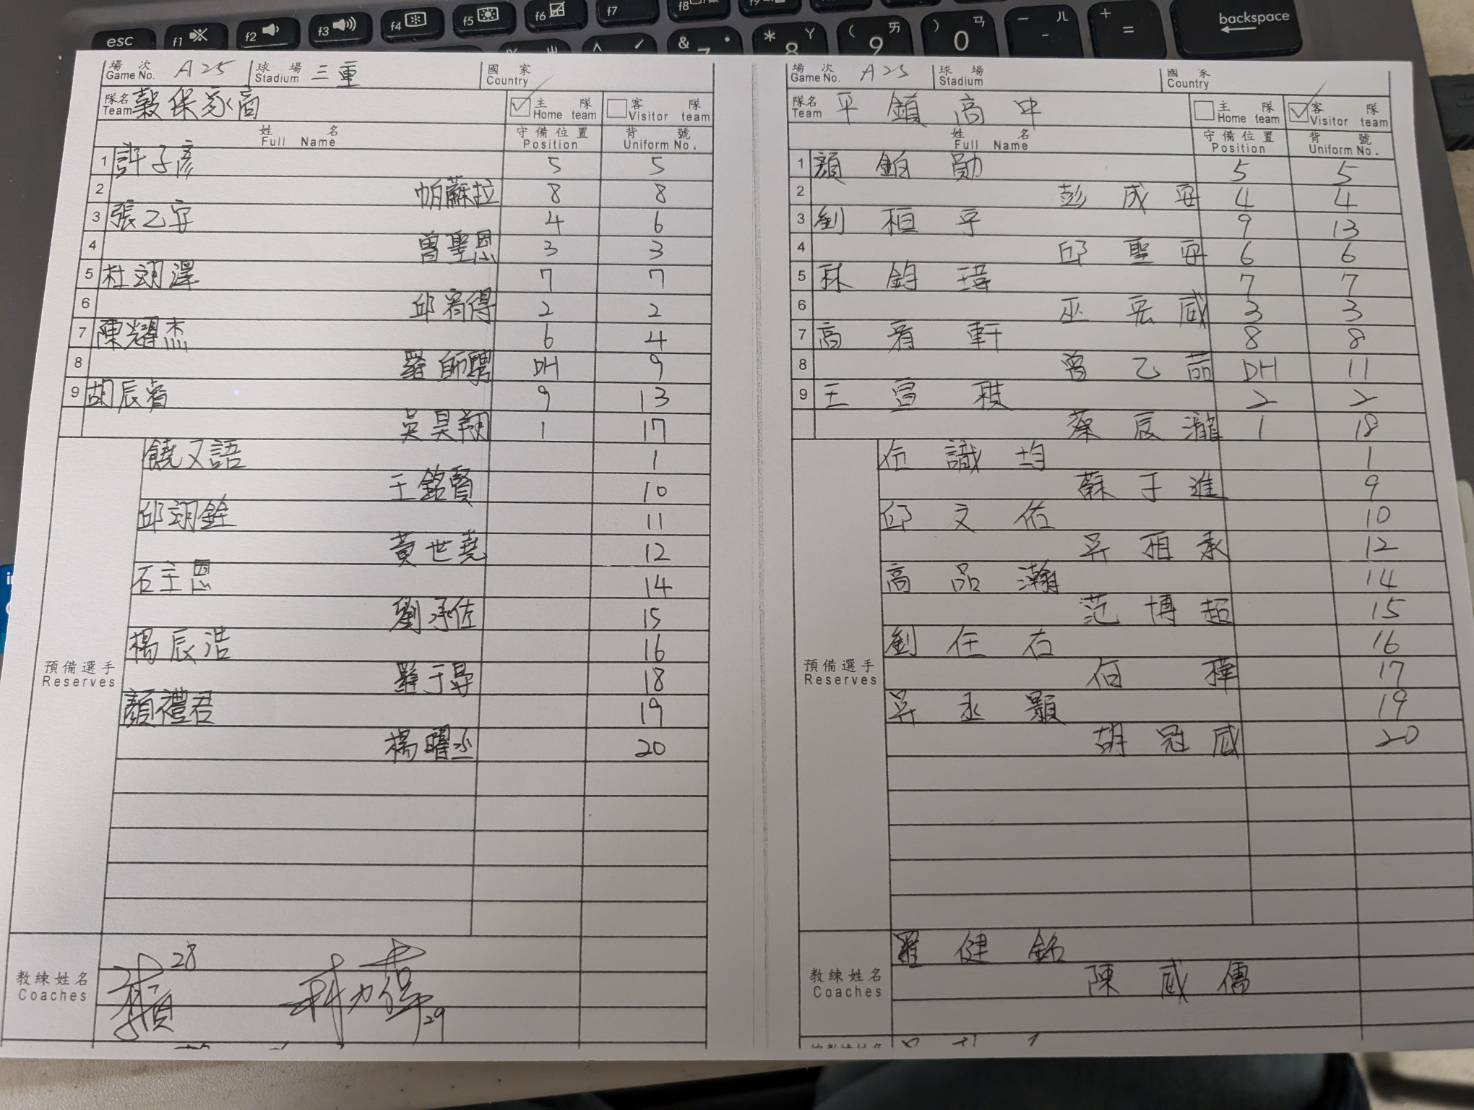 esc f1 f2 f3 f4 f5 f6 f7 f8 backspace
場次 Game No. A25 球場 Stadium 三重 國家 Country
隊名 Team 穀保家商 主隊 Home team 客隊 Visitor team
姓名 Full Name 守備位置 Position 背號 Uniform No.
1 許子彥 5 5
2 帕蘇拉 8 8
3 張乙宇 4 6
4 曾聖恩 3 3
5 杜翊澤 7 7
6 邱宥得 2 2
7 陳耀杰 6 4
8 羅師騁 DH 9
9 胡辰睿 9 13
吳昊翔 1 17
預備選手 Reserves
饒又語 1
王銘賢 10
邱翊銓 11
黃世堯 12
石主恩 14
劉承佐 15
楊辰浩 16
羅于尋 18
顏禮君 19
楊曜丞 20
教練姓名 Coaches
28
29
場次 Game No. A25 球場 Stadium 國家 Country
隊名 Team 平鎮高中 主隊 Home team 客隊 Visitor team
姓名 Full Name 守備位置 Position 背號 Uniform No.
1 顏鉑勛 5 5
2 彭成毋 4 4
3 劉桓宇 9 13
4 邱聖毋 6 6
5 林鈞瑋 7 7
6 巫宏威 3 3
7 高宥軒 8 8
8 曾乙喆 DH 11
9 王宣稘 2 2
蔡辰瀧 1 18
預備選手 Reserves
識均 1
蘇于進 9
邱文佑 10
吳祖承 12
高品瀚 14
范博超 15
劉任右 16
何樺 17
吳丞顥 19
胡冠威 20
教練姓名 Coaches
羅健銘
陳威儒